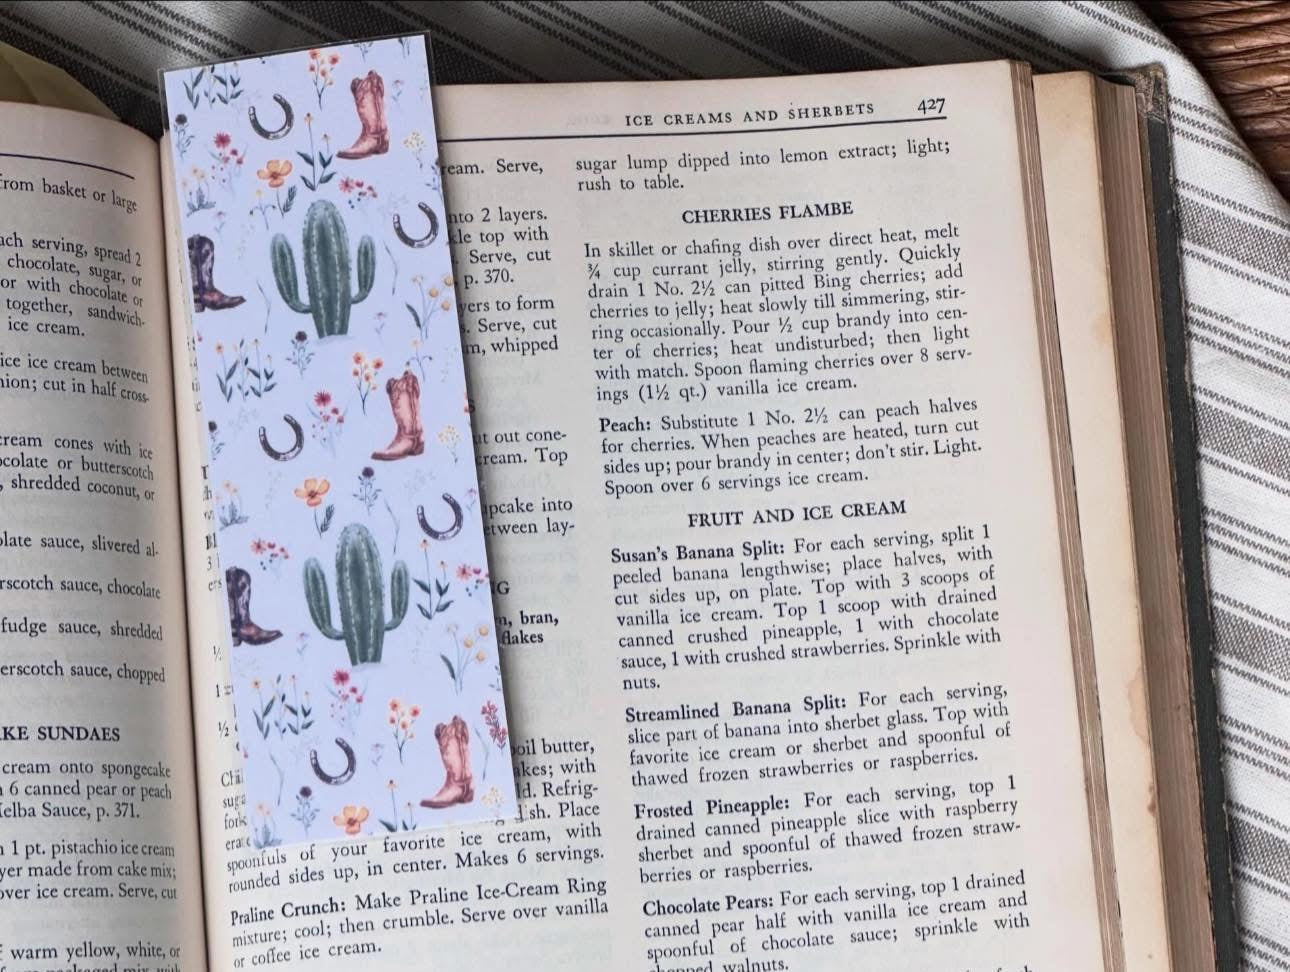 from basket or large
each serving, spread 2
chocolate, sugar, or
or with chocolate or
together, sandwich-
ice cream.
ice ice cream between
cut in half cross-
cream cones with ice
chocolate or butterscotch
shredded coconut, or
sauce, slivered al-
sauce, chocolate
fudge sauce, shredded
sauce, chopped
SUNDAES
cream onto spongecake
6 canned pear or peach
Melba Sauce, p. 371.
1 pt. pistachio ice cream
made from cake mix;
over ice cream. Serve, cut
warm yellow, white, or
ICE CREAMS AND SHERBETS 427
Serve,
into 2 layers.
top with
Serve, cut
p. 370.
to form
Serve, cut
whipped
out cone-
cream. Top
into
between lay-
bran,
flakes
butter,
with
Refrig-
Place
spoonfuls of your favorite ice cream, with
rounded sides up, in center. Makes 6 servings.
Praline Crunch: Make Praline Ice-Cream Ring
mixture; cool; then crumble. Serve over vanilla
or coffee ice cream.
sugar lump dipped into lemon extract; light;
rush to table.
CHERRIES FLAMBE
In skillet or chafing dish over direct heat, melt
¾ cup currant jelly, stirring gently. Quickly
drain 1 No. 2½ can pitted Bing cherries; add
cherries to jelly; heat slowly till simmering, stir-
ring occasionally. Pour ½ cup brandy into cen-
ter of cherries; heat undisturbed; then light
with match. Spoon flaming cherries over 8 serv-
ings (1½ qt.) vanilla ice cream.
Peach: Substitute 1 No. 2½ can peach halves
for cherries. When peaches are heated, turn cut
sides up; pour brandy in center; don't stir. Light.
Spoon over 6 servings ice cream.
FRUIT AND ICE CREAM
Susan's Banana Split: For each serving, split 1
peeled banana lengthwise; place halves, with
cut sides up, on plate. Top with 3 scoops of
vanilla ice cream. Top 1 scoop with drained
canned crushed pineapple, 1 with chocolate
sauce, 1 with crushed strawberries. Sprinkle with
nuts.
Streamlined Banana Split: For each serving,
slice part of banana into sherbet glass. Top with
favorite ice cream or sherbet and spoonful of
thawed frozen strawberries or raspberries.
Frosted Pineapple: For each serving, top 1
drained canned pineapple slice with raspberry
sherbet and spoonful of thawed frozen straw-
berries or raspberries.
Chocolate Pears: For each serving, top 1 drained
canned pear half with vanilla ice cream and
spoonful of chocolate sauce; sprinkle with
chopped walnuts.